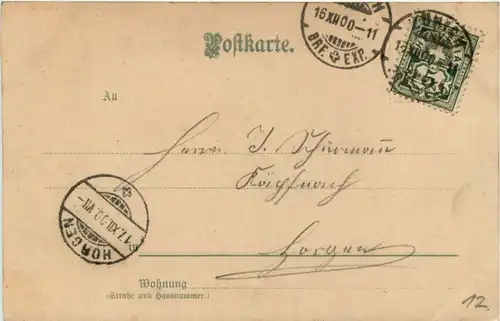 Postkarte.
16 XII 00 - 11
BRF. EXP.
16 XII 00 - 11
An
Herrn J. Schürmann
Käpfnach
in Horgen
HORGEN
17. XII 00. VII -
Wohnung
(Straße und Hausnummer.)
12.